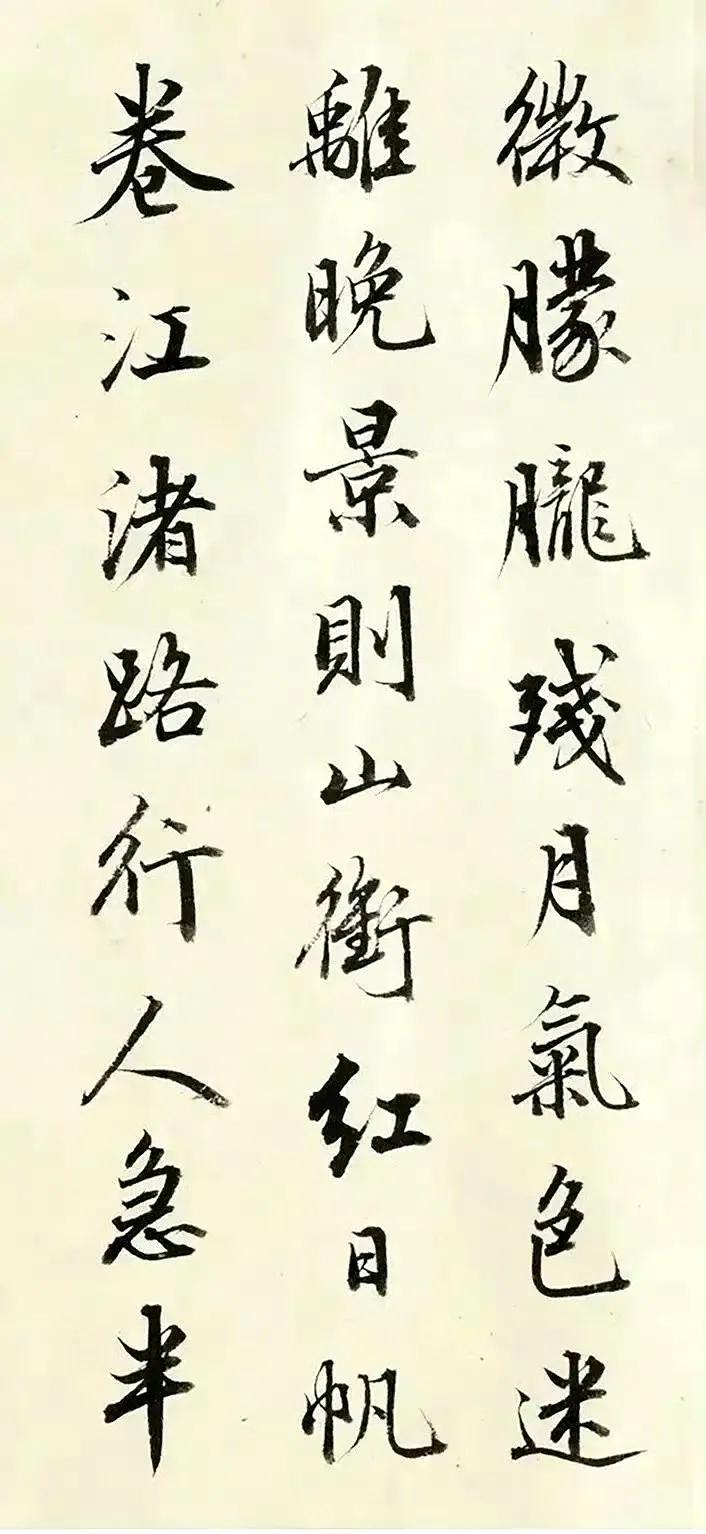 微朦朧殘月氣色迷
離晚景則山銜紅日帆
卷江渚路行人急半